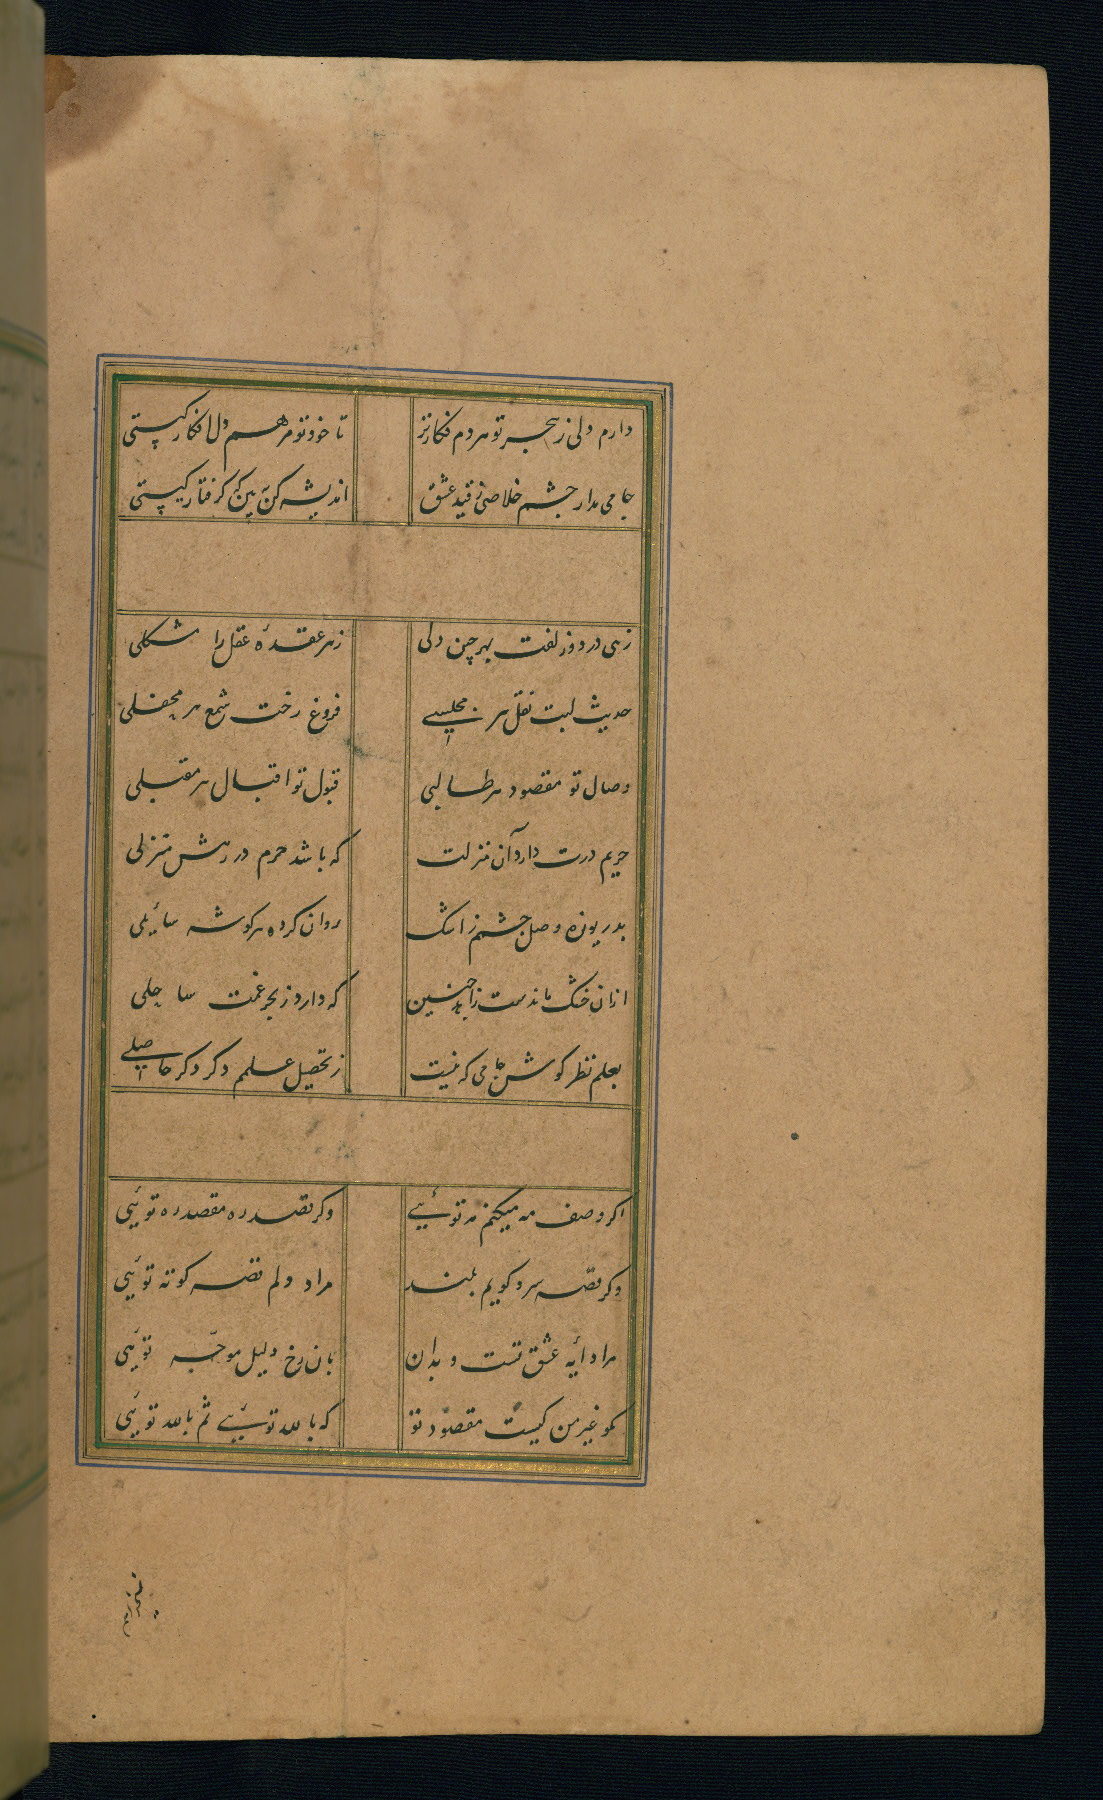 دارم دلی ز هجر تو هر دم فکارتر تا خود تو مرهم دل افکار کیستی
جامی مدار چشم خلاصی ز قید عشق اندیشه کن ببین که گرفتار کیستی
زهی در دو زلفت بهر چین دلی ز هر عقدهٔ عقل را مشکلی
حدیث لبت نقل هر مجلسی فروغ رخت شمع هر محفلی
وصال تو مقصود هر طالبی قبول تو اقبال هر مقبلی
حریم درت دارد آن منزلت که باشد حرم در رهش منزلی
بدریوزه وصل چشمم ز اشک روان کرده هر گوشه سائلی
ازان خشک ماندست زاهد چنین که دارد ز بحر غمت ساحلی
بعلم نظر کوش جامی که نیست ز تحصیل علم دگر حاصلی
اگر وصف مه میکنم مه توئیی وگر قصد ره مقصد ره توئیی
وگر قصّه سرو گویم بلند مراد دلم قصه کوته توئیی
مراد آیه عشق تست و بدان بآن رخ دلیل موجّه توئیی
مگو غیر من کیست مقصود تو که بالله توئیی ثم بالله توئیی